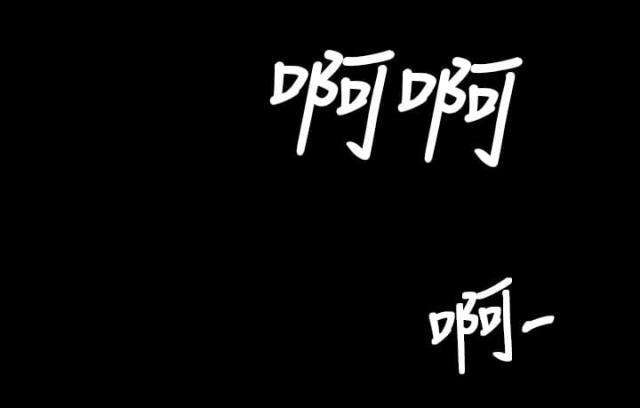 啊啊
啊-